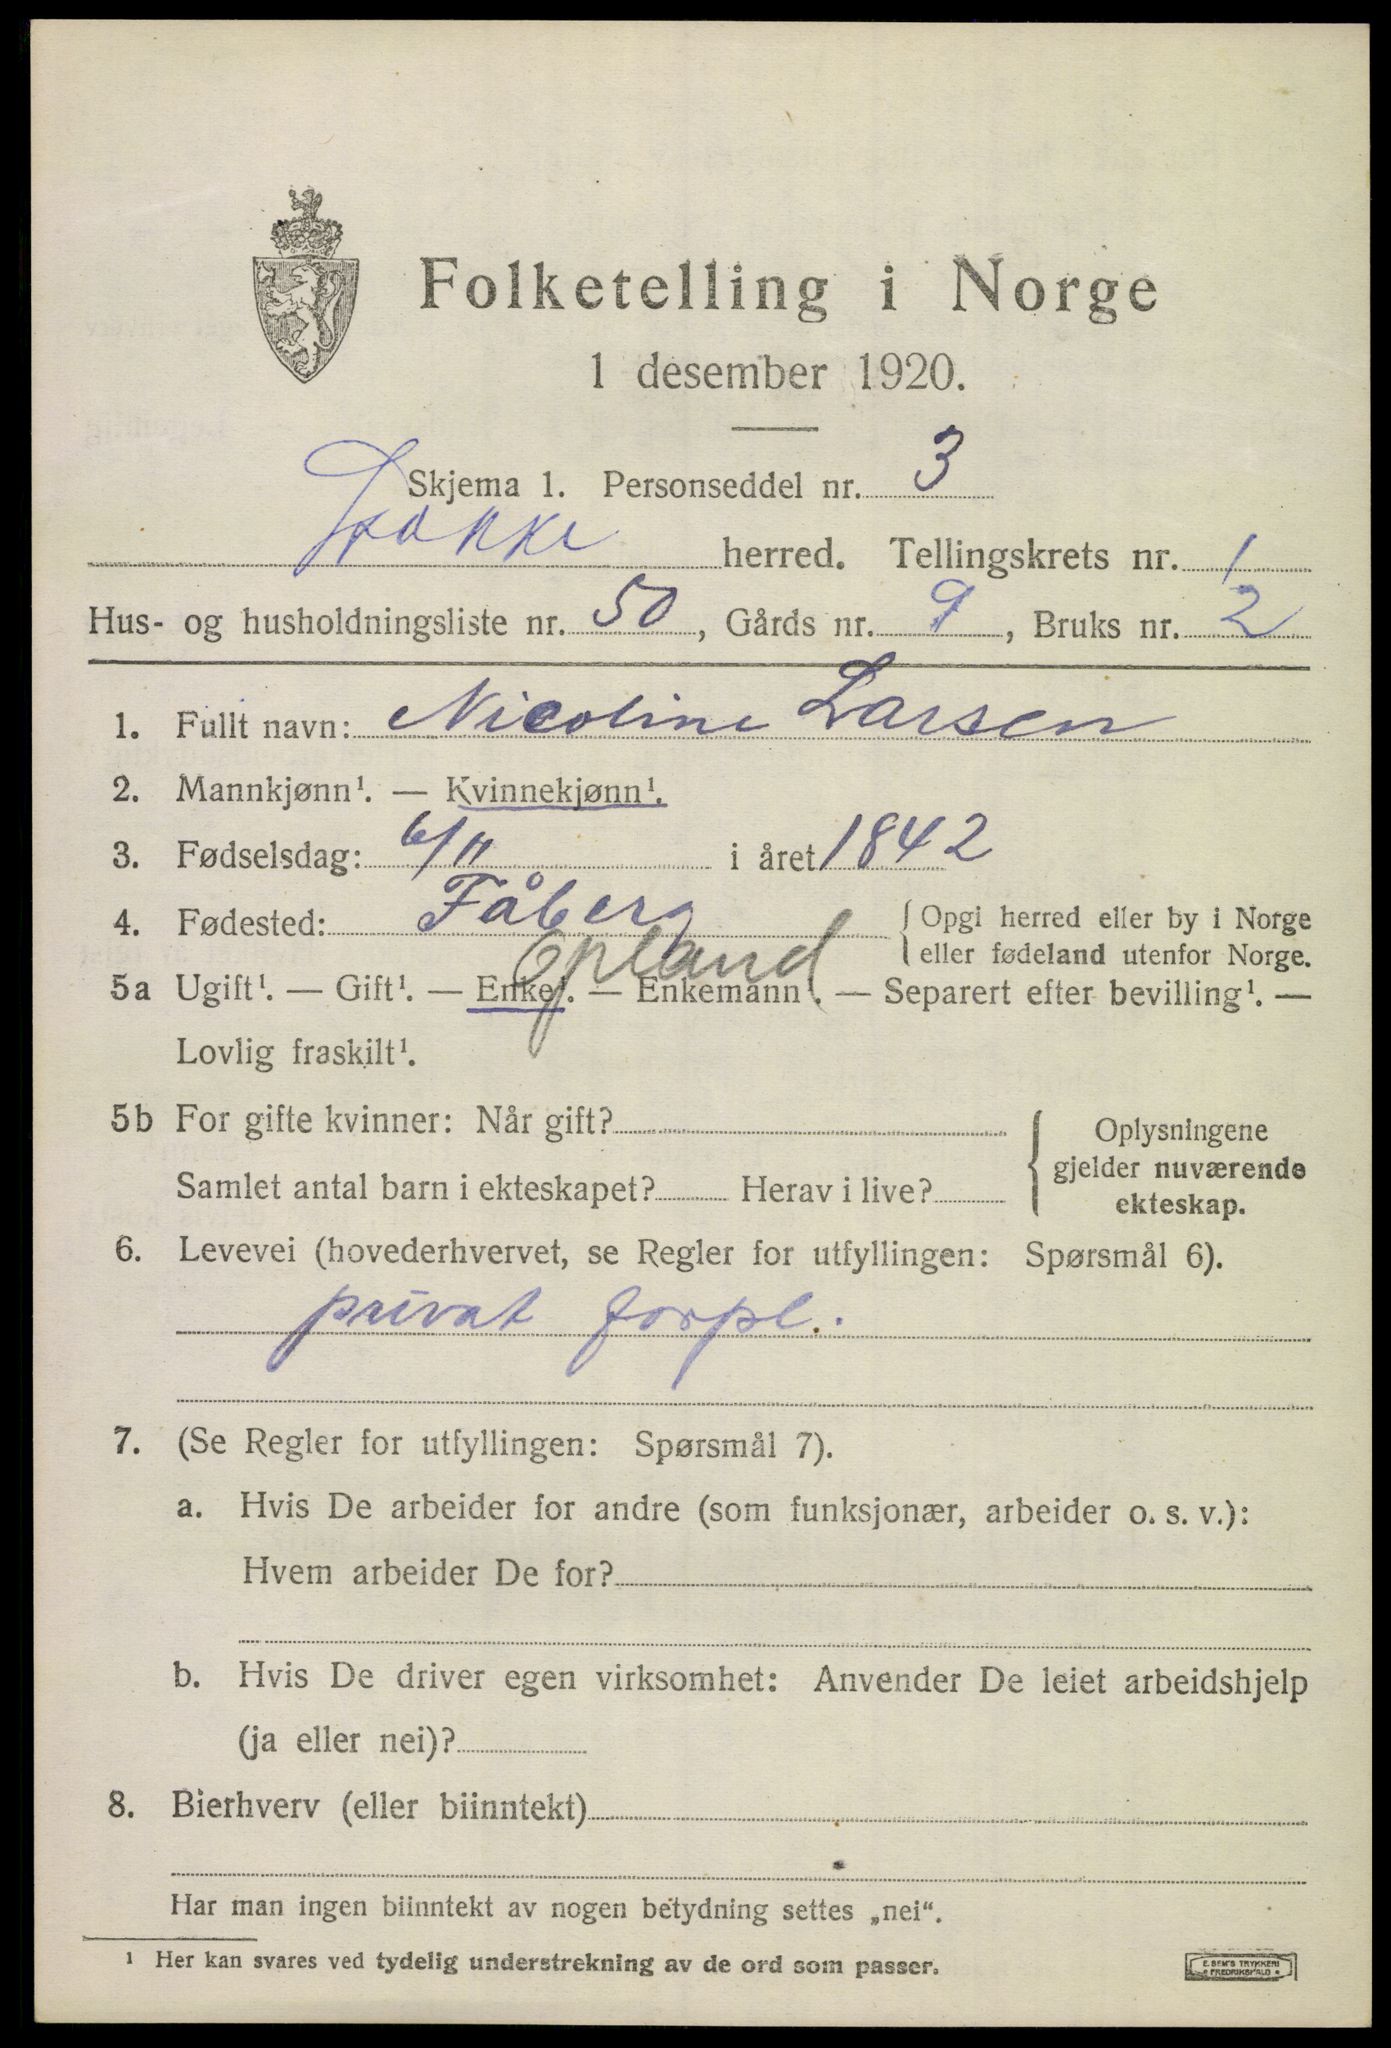 Folketelling i Norge
1 desember 1920.
Skjema 1. Personseddel nr. 3
herred. Tellingskrets nr. 1
Hus- og husholdningsliste nr. 50, Gårds nr. 9, Bruks nr. 2
1. Fullt navn: Nicoline Larsen
2. Mannkjønn¹. — Kvinnekjønn¹.
3. Fødselsdag: 6/11 i året 1842
4. Fødested: Fåberg { Opgi herred eller by i Norge
eller fødeland utenfor Norge.
Opland
5a Ugift¹. — Gift¹. — Enke¹. — Enkemann¹. — Separert efter bevilling¹. —
Lovlig fraskilt¹.
5b For gifte kvinner: Når gift?
Samlet antal barn i ekteskapet? Herav i live?
{ Oplysningene
gjelder nuværende
ekteskap.
6. Levevei (hovederhvervet, se Regler for utfyllingen: Spørsmål 6).
privat forpl.
7. (Se Regler for utfyllingen: Spørsmål 7).
a. Hvis De arbeider for andre (som funksjonær, arbeider o. s. v.):
Hvem arbeider De for?
b. Hvis De driver egen virksomhet: Anvender De leiet arbeidshjelp
(ja eller nei)?
8. Bierhverv (eller biinntekt)
Har man ingen biinntekt av nogen betydning settes „nei“.
¹ Her kan svares ved tydelig understrekning av de ord som passer.
E. SEM'S TRYKKERI
FREDRIKSHALD